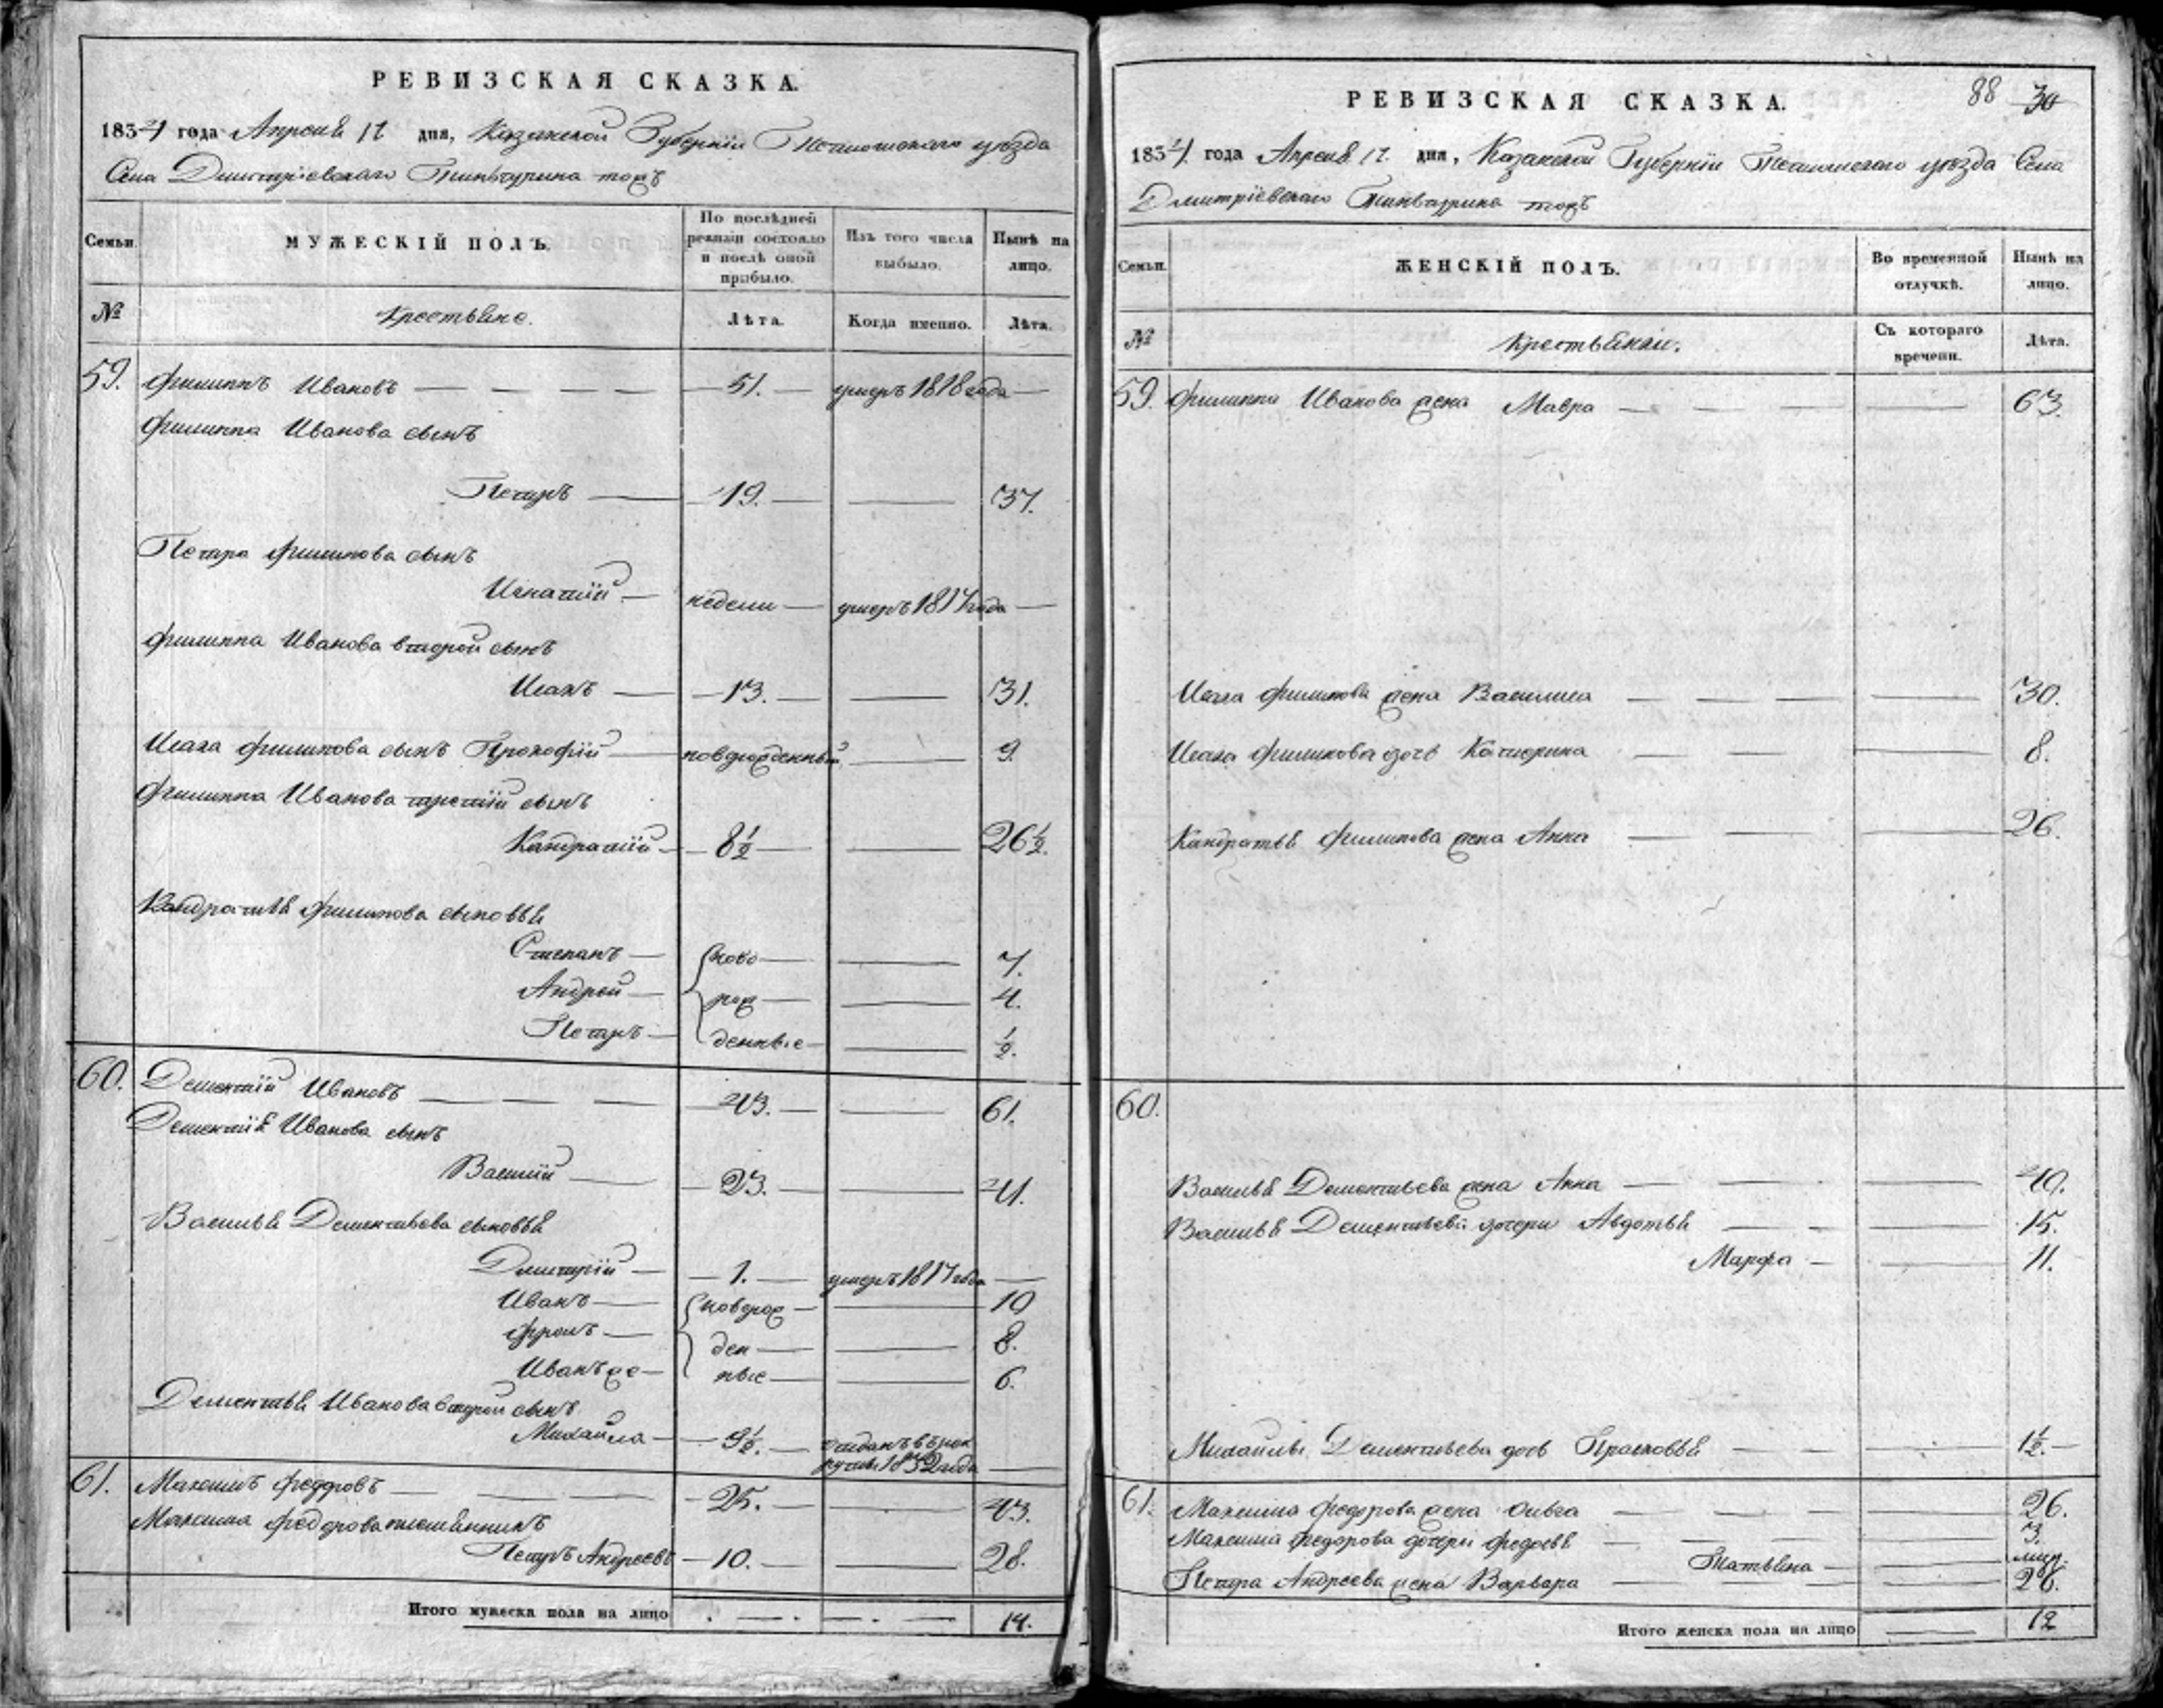 РЕВИЗСКАЯ СКАЗКА.
1834 года Апреля 17 дня, Казанской Губернiи уезда
Села Дмитрiевскаго тожъ
Семьи.
МУЖЕСКIЙ ПОЛЪ.
По послѣдней ревизiи состояло и послѣ оной прибыло.
Изъ того числа выбыло.
Нынѣ на лицо.
№
Крестьяне.
Лѣта.
Когда именно.
Лѣта.
59. Филиппъ Ивановъ — 51. — умеръ 1818 года —
Филиппа Иванова сынъ
Петръ — 19. — 37.
Петра Филипова сынъ
Игнатiй — недели — умеръ 1817 года —
Филиппа Иванова второй сынъ
Исакъ — 13. — 31.
Исака Филипова сынъ Прокофiй — новорожденный — 9
Филиппа Иванова третiй сынъ
Кандратiй — 8½ — 26½.
Кандратья Филипова сыновья
Степанъ — ново — 7.
Андрей — рож — 4.
Петръ — денные — ½.
60. Дементiй Ивановъ — 43. — 61.
Дементiя Иванова сынъ
Василiй — 23. — 41.
Василья Дементьева сыновья
Дмитрiй — 1. — умеръ 1817 года —
Иванъ — новорож — 10
Фролъ — ден — 8.
Иванъ же — ные — 6.
Дементья Иванова второй сынъ
Михайла — 9½. — отданъ в рек
руты 1832 года —
61. Максимъ Федоровъ — 25. — 43.
Максима Федорова племянникъ
Петръ Андреевъ — 10. — 28.
Итого мужеска пола на лицо — 14.
88 30
РЕВИЗСКАЯ СКАЗКА.
1834 года Апреля 17 дня, Казанской Губернiи уезда Села
Дмитрiевскаго тожъ
Семьи.
ЖЕНСКIЙ ПОЛЪ.
Во временной отлучкѣ.
Нынѣ на лицо.
№
Крестьянки.
Съ котораго времени.
Лѣта.
59. Филиппа Иванова жена Мавра — 63.
Исака Филипова жена Василиса — 30.
Исака Филипова дочь Катерина — 8.
Кандратья Филипова жена Анна — 26.
60.
Василья Дементьева жена Анна — 40.
Василья Дементьева дочери Авдотья — 15.
Марфа — 11.
Михайлы Дементьева дочь Прасковья — 1½.
61. Максима Федорова жена Ольга — 26.
Максима Федорова дочери Федосья — 3.
Татьяна —
Петра Андреева жена Варвара — 26.
Итого женска пола на лицо — 12